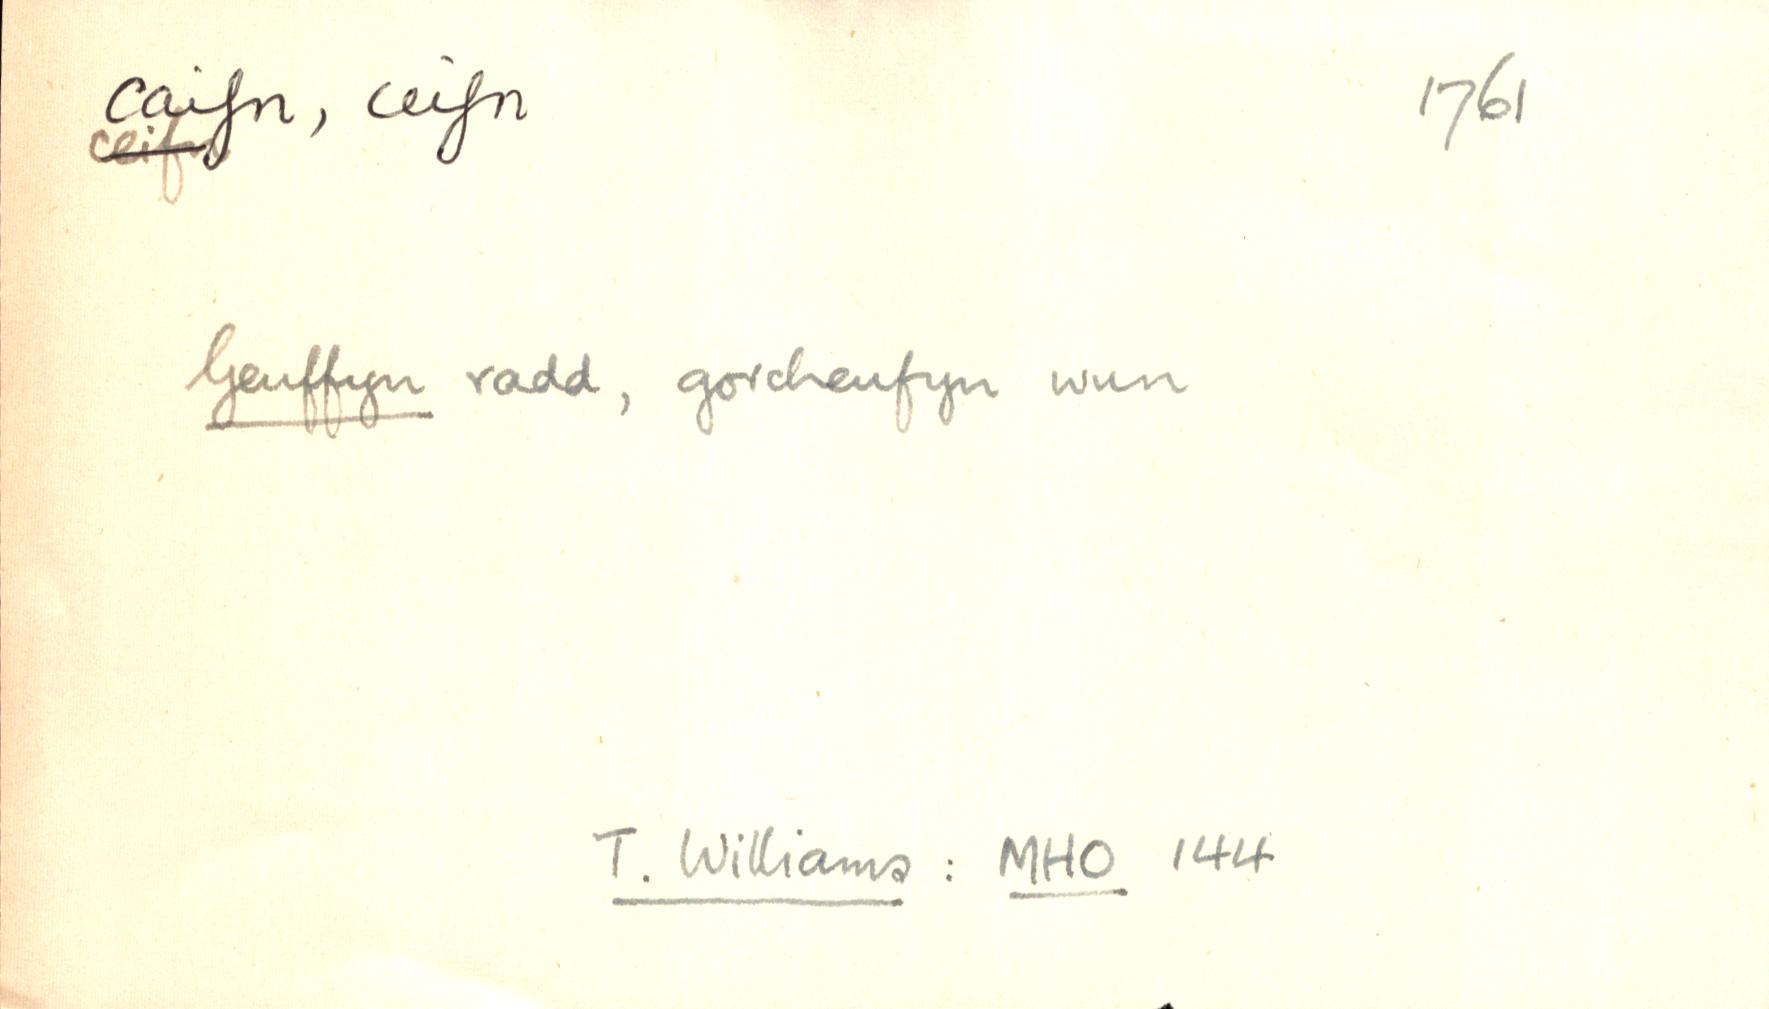 caifn, ceifn 1761
ceifn
Geuffyn radd, gorcheufyn wun
T. Williams : MHO 144